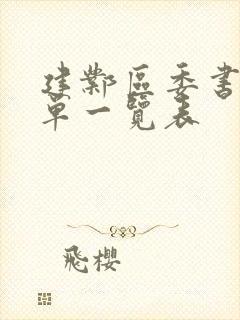 建鄴區委書
單一覽表
飛櫻